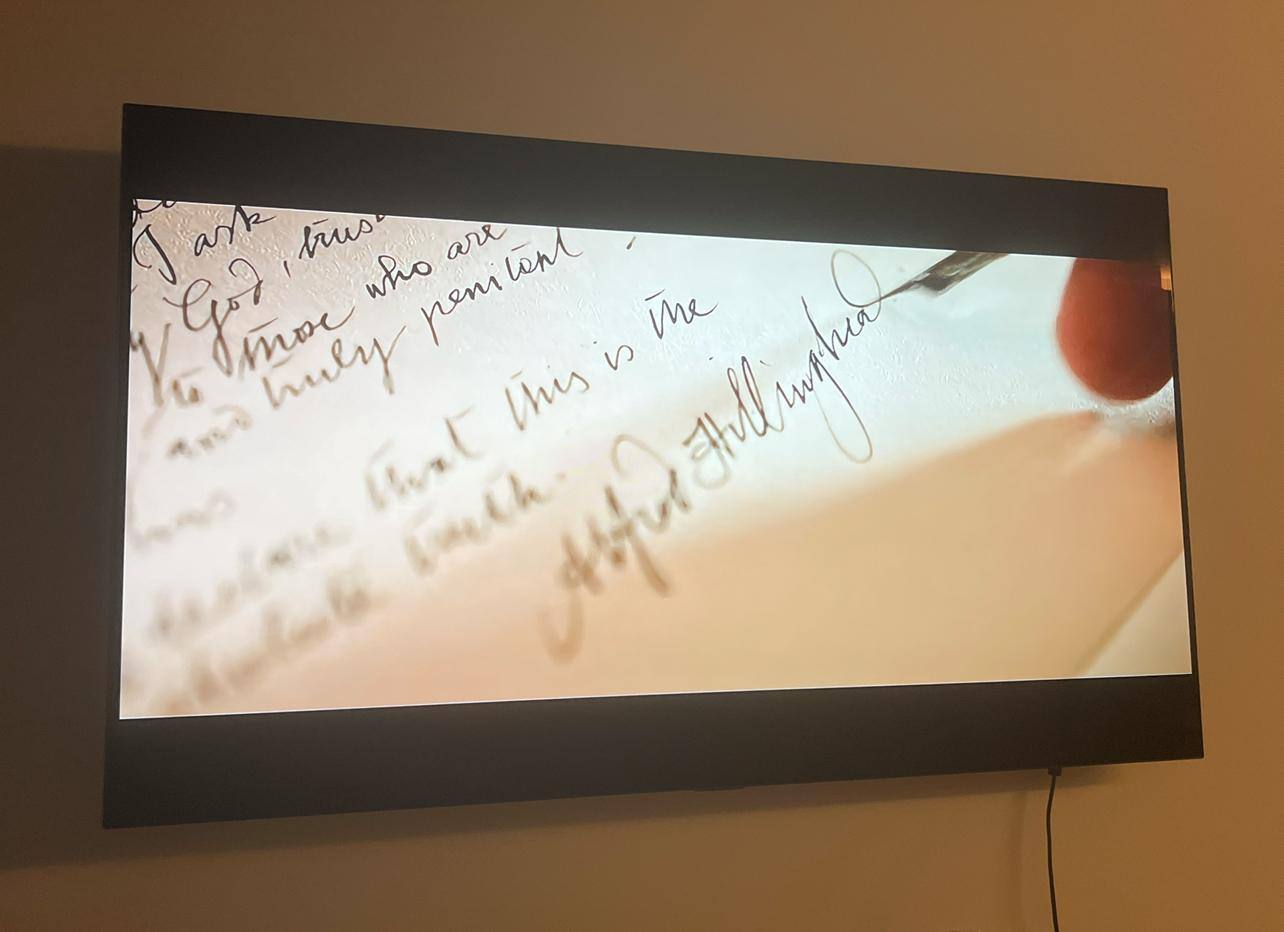 I ask
God, trus
to those who are
and truly penitent.
has
declare that this is the
absolute truth.
Alfred Hillinghead